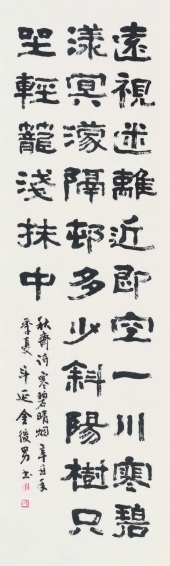 遠視迷離近即空一川寒碧
漾冥濛隔邨多少斜陽樹只
㘴輕籠淺抹中
秋齋詩寒碧晴烟辛丑年
季夏斗延金復男書